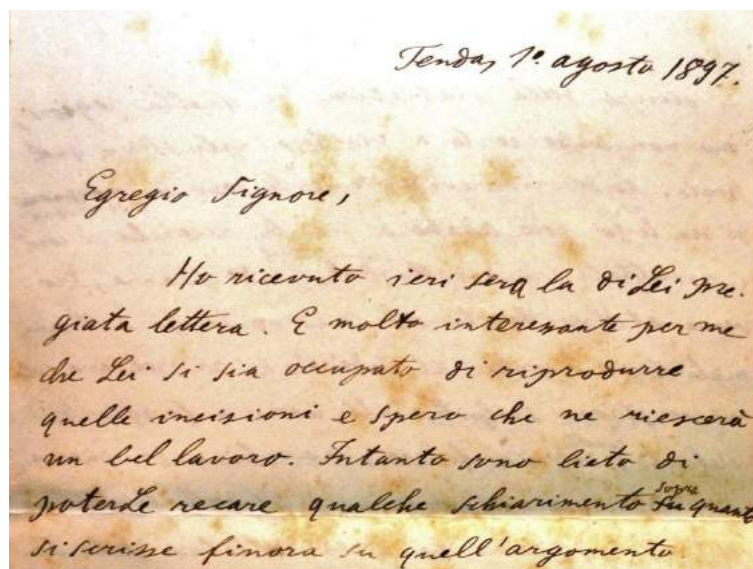 Tenda, 1º. agosto 1897.
Egregio Signore,
Ho ricevuto ieri sera la di Lei pre-
giata lettera. E molto interessante per me
che Lei si sia occupato di riprodurre
quelle incisioni e spero che ne riescerà
un bel lavoro. Intanto sono lieto di
poterLe recare qualche schiarimento sopra quanto
si scrisse finora su quell'argomento.